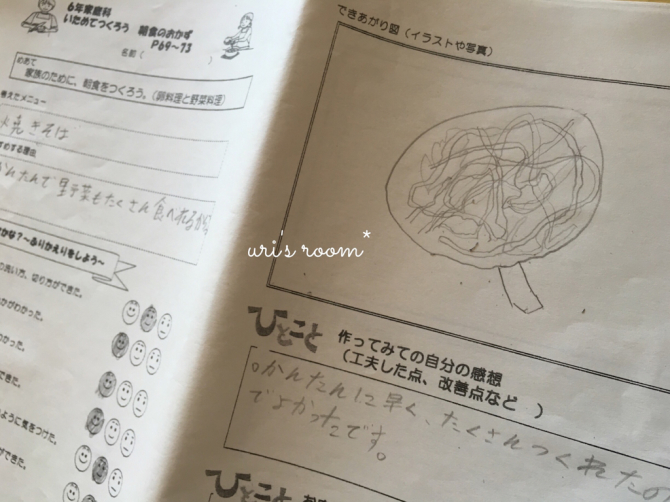 6年家庭科
いためてつくろう 朝食のおかず
P69〜73
名前( )
めあて
家族のために、朝食をつくろう。(卵料理と野菜料理)
考えたメニュー
焼きそば
すすめする理由
かんたんで野菜もたくさん食べれるから
かな?〜ふりかえりをしよう〜
洗い方、切り方ができた。
かがわかった。
わかった。
できた。
ように気をつけた。
ができた。
できあがり図(イラストや写真)
uri's room*
ひとこと
作ってみての自分の感想
(工夫した点、改善点など )
。かんたんに早く、たくさんつくれたの
でよかったです。
ひとこと